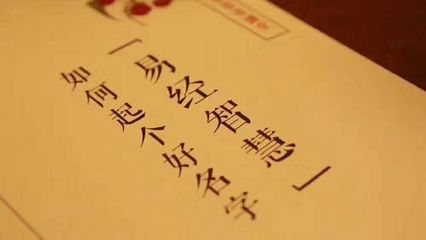 「易经智慧」
如何起个好名字